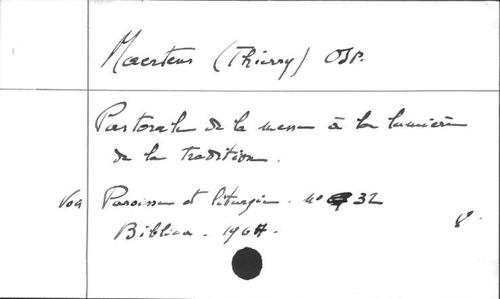 Maertens (Thierry) OSB.
Pastorale de la messe à la lumière
de la tradition.
Voa Paroisse et liturgie. no 32
Biblica. 1964. 8°